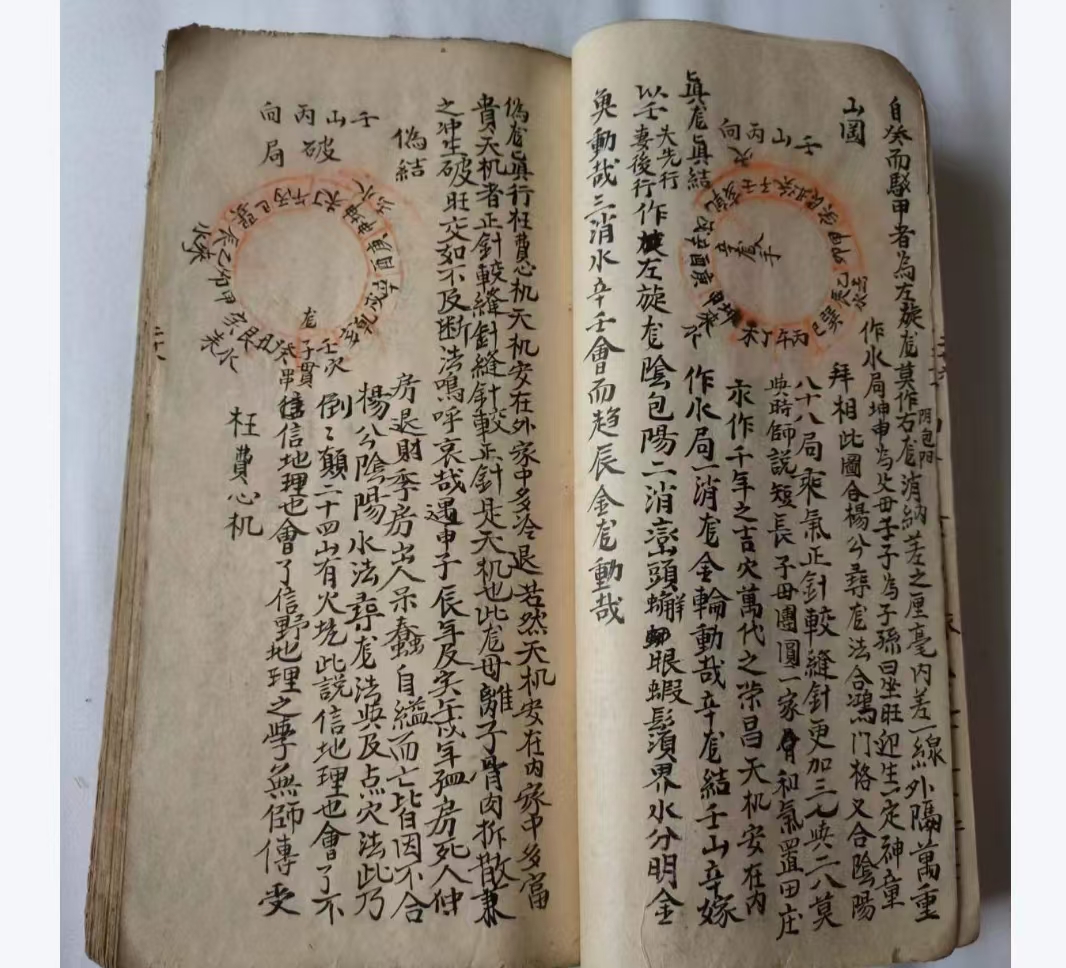 自癸而駁甲者為左旋龙莫作右龙消納差之厘毫内差一線外隔萬重
山図
作水局坤申為父母子子為子孫曰坐旺迎生一定神童
拜相此圖合楊公尋龙法合鴻門格又合陰陽
壬山丙向
八十八局乘氣正針較縫針更加三七與二八莫
與時師説短長子母團圓一家會和氣置田庄
求作千年之吉穴萬代之榮昌天机安在内
真龙真結
作水局一消龙金輪動哉辛龙結壬山辛嫁
以壬夫先行妻後行作左旋龙陰包陽二消巒頭蠏眼蝦鬚界水分明金
奥動哉三消水辛壬會而趋辰金龙動哉
偽龙真行枉費心机天机安在外家中多冷退若然天机安在内家中多富
貴天机者正針較縫針縫針較正針是天机也此龙母離子骨肉拆散兼
之冲生破旺交如不及断法嗚呼哀哉遇申子辰年及寅午戌年孤房死人仲
偽結
壬山丙向
破局
房退財季房出人呆蠢自縊而亡皆因不合
楊公陰陽水法尋龙法與及点穴法此乃
倒々顛二十四山有火坑此説信地理也會了不
信地理也會了信野地理之學無師傳受
枉費心机